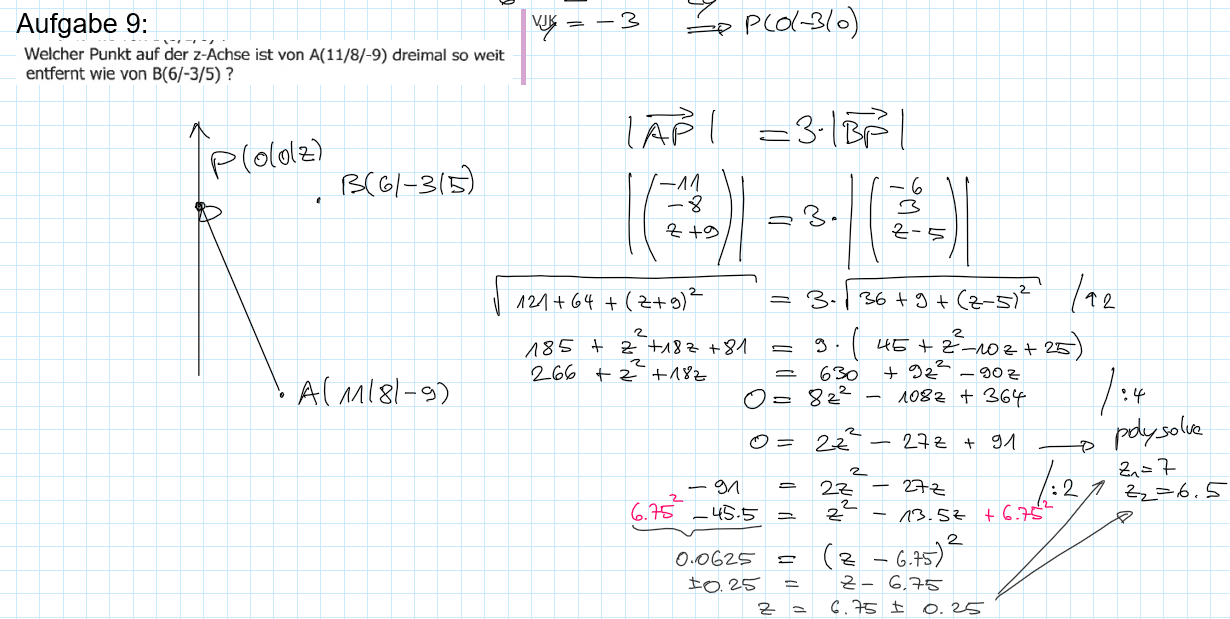 Aufgabe 9:
y = -3 ⟹ P(0/-3/0)
Welcher Punkt auf der z-Achse ist von A(11/8/-9) dreimal so weit
entfernt wie von B(6/-3/5) ?
P(0/0/z)
B(6/-3/5)
A(11/8/-9)
|AP| = 3·|BP|
|(-11 -8 z+9)| = 3·|(-6 3 z-5)|
√(121+64+(z+9)²) = 3·√(36+9+(z-5)²) /↑2
185 + z²+18z+81 = 9·(45+z²-10z+25)
266 + z²+18z = 630 + 9z² - 90z
0 = 8z² - 108z + 364 /:4
0 = 2z² - 27z + 91 → polysolve
z₁=7
z₂=6.5
-91 = 2z² - 27z /:2
6.75² -45.5 = z² - 13.5z + 6.75²
0.0625 = (z - 6.75)²
±0.25 = z - 6.75
z = 6.75 ± 0.25